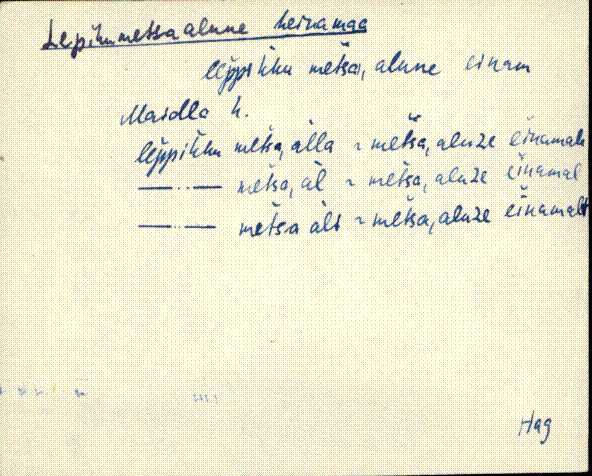 Lepikumetsaalune heinamaa
leppiku metsa, alune einam
Maidla k.
leppiku metsa, alla ~ metsa, aluze einamale
—··— metsa, al ~ metsa, aluze einamal
—··— metsa alt ~ metsa, aluze einamalt
Hag